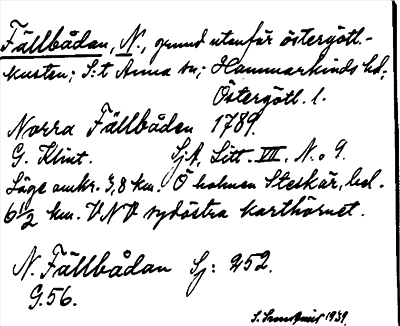 Fällbådan, N., grund utanför östergötl.-
kusten; S:t Anna sn; Hammarkinds hd;
Östergötl. l.
Norra Fällbåden 1789.
G. Klint. SjA, Litt. VII. N:o 9.
Läge omkr. 3,8 km. Ö holmen Steskär, bel.
6 1/2 km. VNV sydöstra karthörnet.
N. Fällbådan Sj: 252.
G. 56.
1939